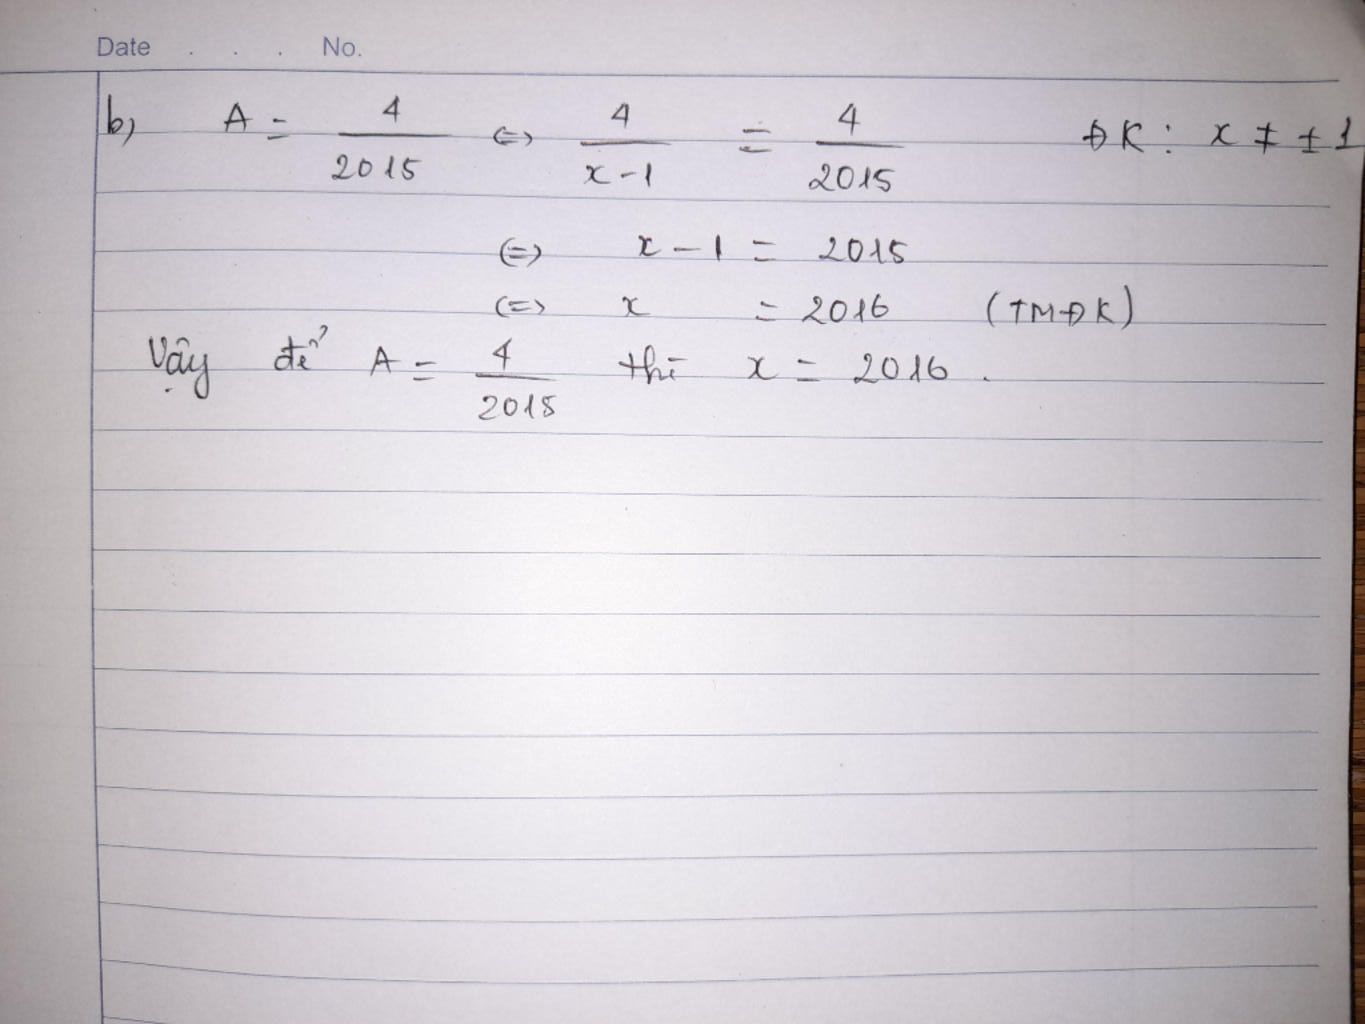 Date . . . No.
b) A = 4/2015 <=> 4/(x-1) = 4/2015 ĐK: x ≠ ±1
<=> x - 1 = 2015
<=> x = 2016 (TMĐK)
Vậy để A = 4/2015 thì x = 2016.